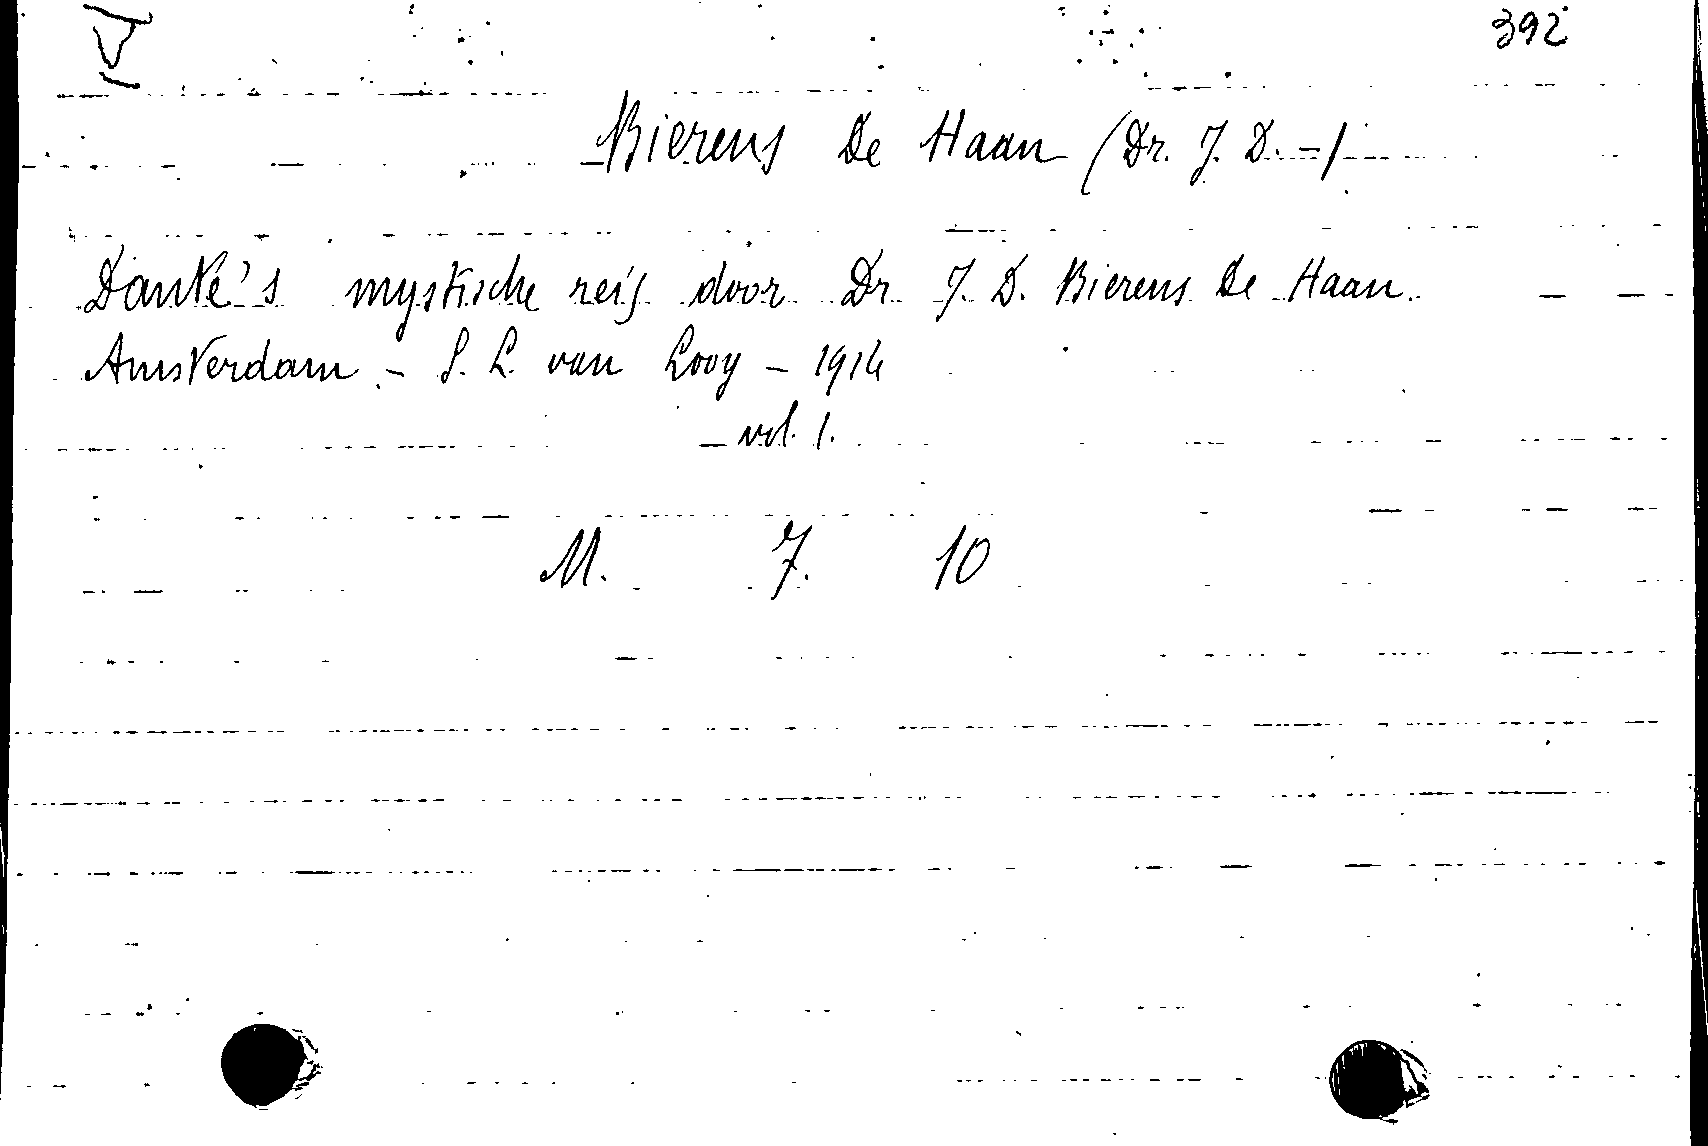 392
Bierens De Haan (Dr. J. D. -)
Dante's mystische reis door Dr J. D. Bierens De Haan.
Amsterdam - S. L. van Looy - 1914
- vol. 1.
M. 7. 10